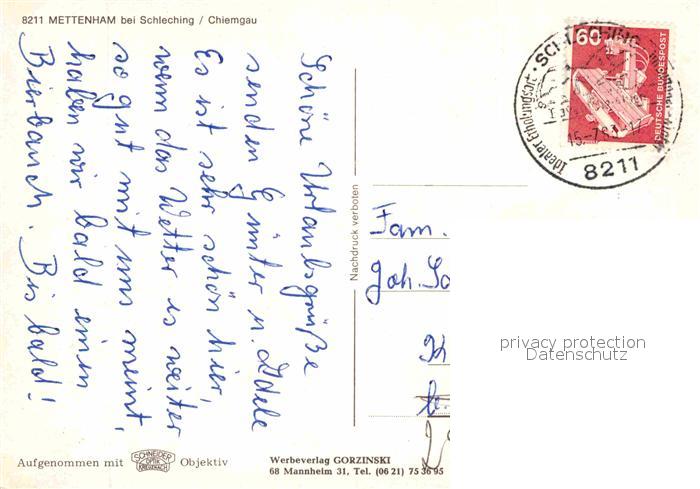 8211 METTENHAM bei Schleching / Chiemgau
Schöne Urlaubsgrüße
senden Günter u. Adele
Es ist sehr schön hier,
wenn das Wetter es weiter
so gut mit uns meint,
haben wir bald einen
Bierbauch. Bis bald!
Nachdruck verboten
60
DEUTSCHE BUNDESPOST
SCHLECHING
Idealer Erholungsort
15.-7.83-17
8211
Fam.
Joh.
privacy protection
Datenschutz
Aufgenommen mit SCHNEIDER OPTIK KREUZNACH Objektiv
Werbeverlag GORZINSKI
68 Mannheim 31, Tel. (06 21) 75 36 95